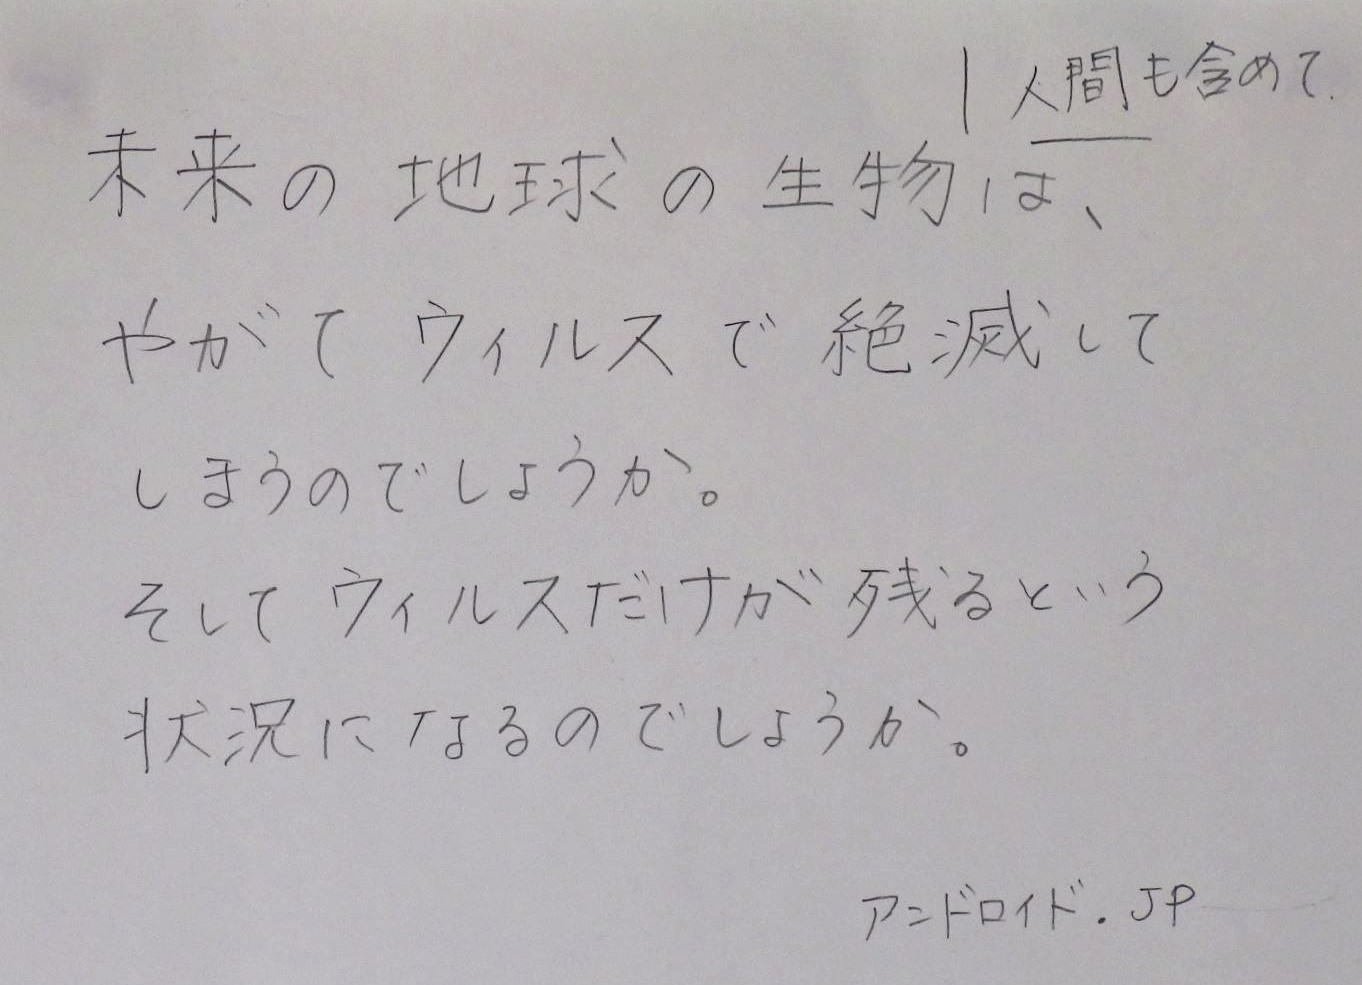 人間も含めて
未来の地球の生物は、
やがてウィルスで絶滅して
しまうのでしょうか。
そしてウィルスだけが残るという
状況になるのでしょうか。
アンドロイド.JP